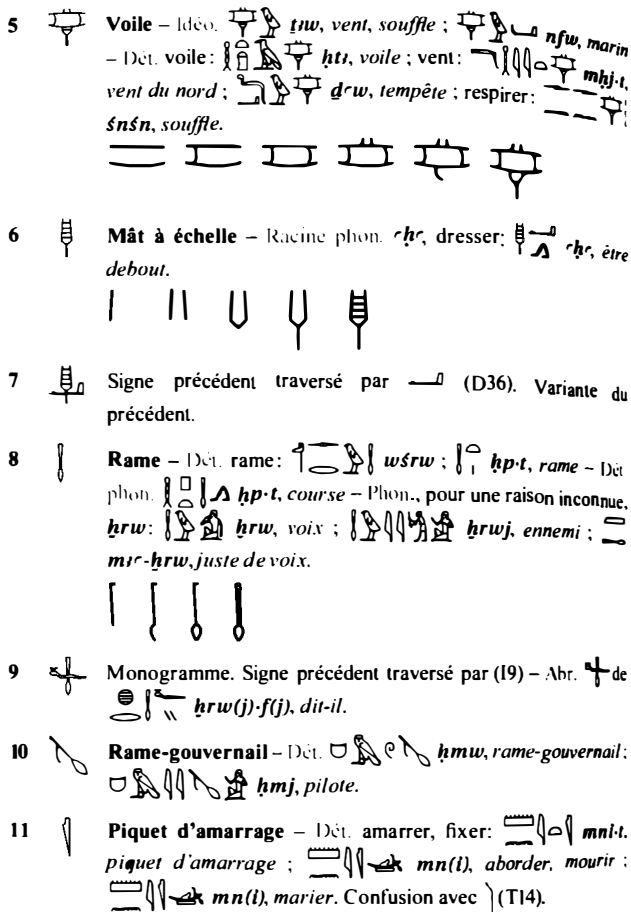 5 Voile – Idéo. ṯꜣw, vent, souffle ; nfw, marin
– Dét. voile : ḥtꜣ, voile ; vent : mḥj·t,
vent du nord ; ḏꜥw, tempête ; respirer :
śnśn, souffle.
6 Mât à échelle – Racine phon. ꜥḥꜥ, dresser: ꜥḥꜥ, être
debout.
7 Signe précédent traversé par (D36). Variante du
précédent.
8 Rame – Dét. rame : wśrw ; ḥp·t, rame – Dét
phon. ḥp·t, course – Phon., pour une raison inconnue,
ḫrw : ḫrw, voix ; ḫrwj, ennemi ;
mꜣꜥ-ḫrw, juste de voix.
9 Monogramme. Signe précédent traversé par (I9) – Abr. de
ḫrw(j)·f(j), dit-il.
10 Rame-gouvernail – Dét. ḥmw, rame-gouvernail ;
ḥmj, pilote.
11 Piquet d'amarrage – Dét. amarrer, fixer: mni·t,
piquet d'amarrage ; mn(i), aborder, mourir ;
mn(i), marier. Confusion avec (T14).